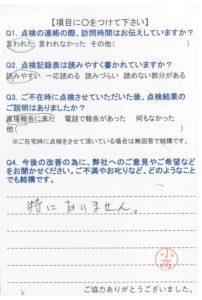 【項目に○をつけて下さい】
Q1. 点検の連絡の際、訪問時間はお伝えしていますか？
言われた 言われなかった その他( )
Q2. 点検記録表は読みやすく書かれていますか？
読みやすい 一応読める 読みづらい 読めない部分がある
Q3. ご不在時に点検させていただいた後、点検結果の
ご説明はありましたか？
直接報告に来た 電話で報告があった 何もなかった
他( )
※ご在宅時に点検をさせて頂いている場合は無回答で結構です。
Q4. 今後の改善の為に、弊社へのご意見やご希望など
をお聞かせください。ご不満やお叱りなど、どのようなこと
でも結構です。
特にありません。
小高
ご協力ありがとうございました。